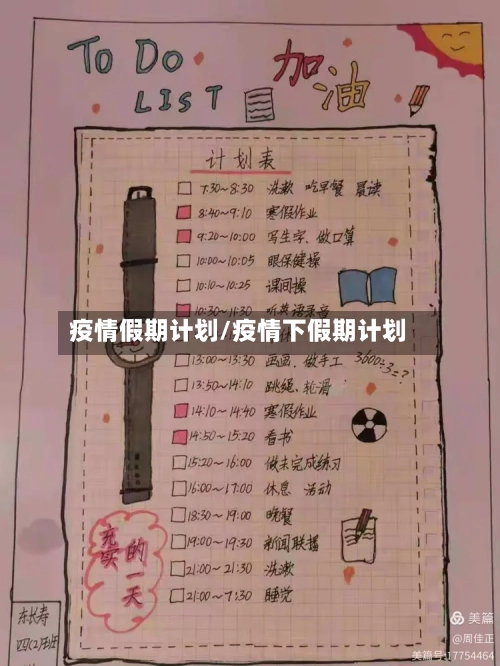 TO DO
LIST
加油
计划表
7:30~8:30 洗漱 吃早餐 晨读
8:40~9:10 寒假作业
9:20~10:00 写生字、做口算
10:00~10:05 眼保健操
10:10~10:25 课间操
10:30~11:30 听英语录音
疫情假期计划/疫情下假期计划
13:00~13:30 画画、做手工
3600÷3=?
13:50~14:10 跳绳、轮滑
14:10~14:40 寒假作业
14:50~15:20 看书
15:20~16:00 做未完成练习
16:00~17:00 休息 活动
18:30~19:00 晚餐
19:00~19:30 新闻联播
21:00~21:30 洗漱
21:00~7:30 睡觉
充实的一天
东长寿
四(2)班
美篇
@周佳正
美篇号:17754464